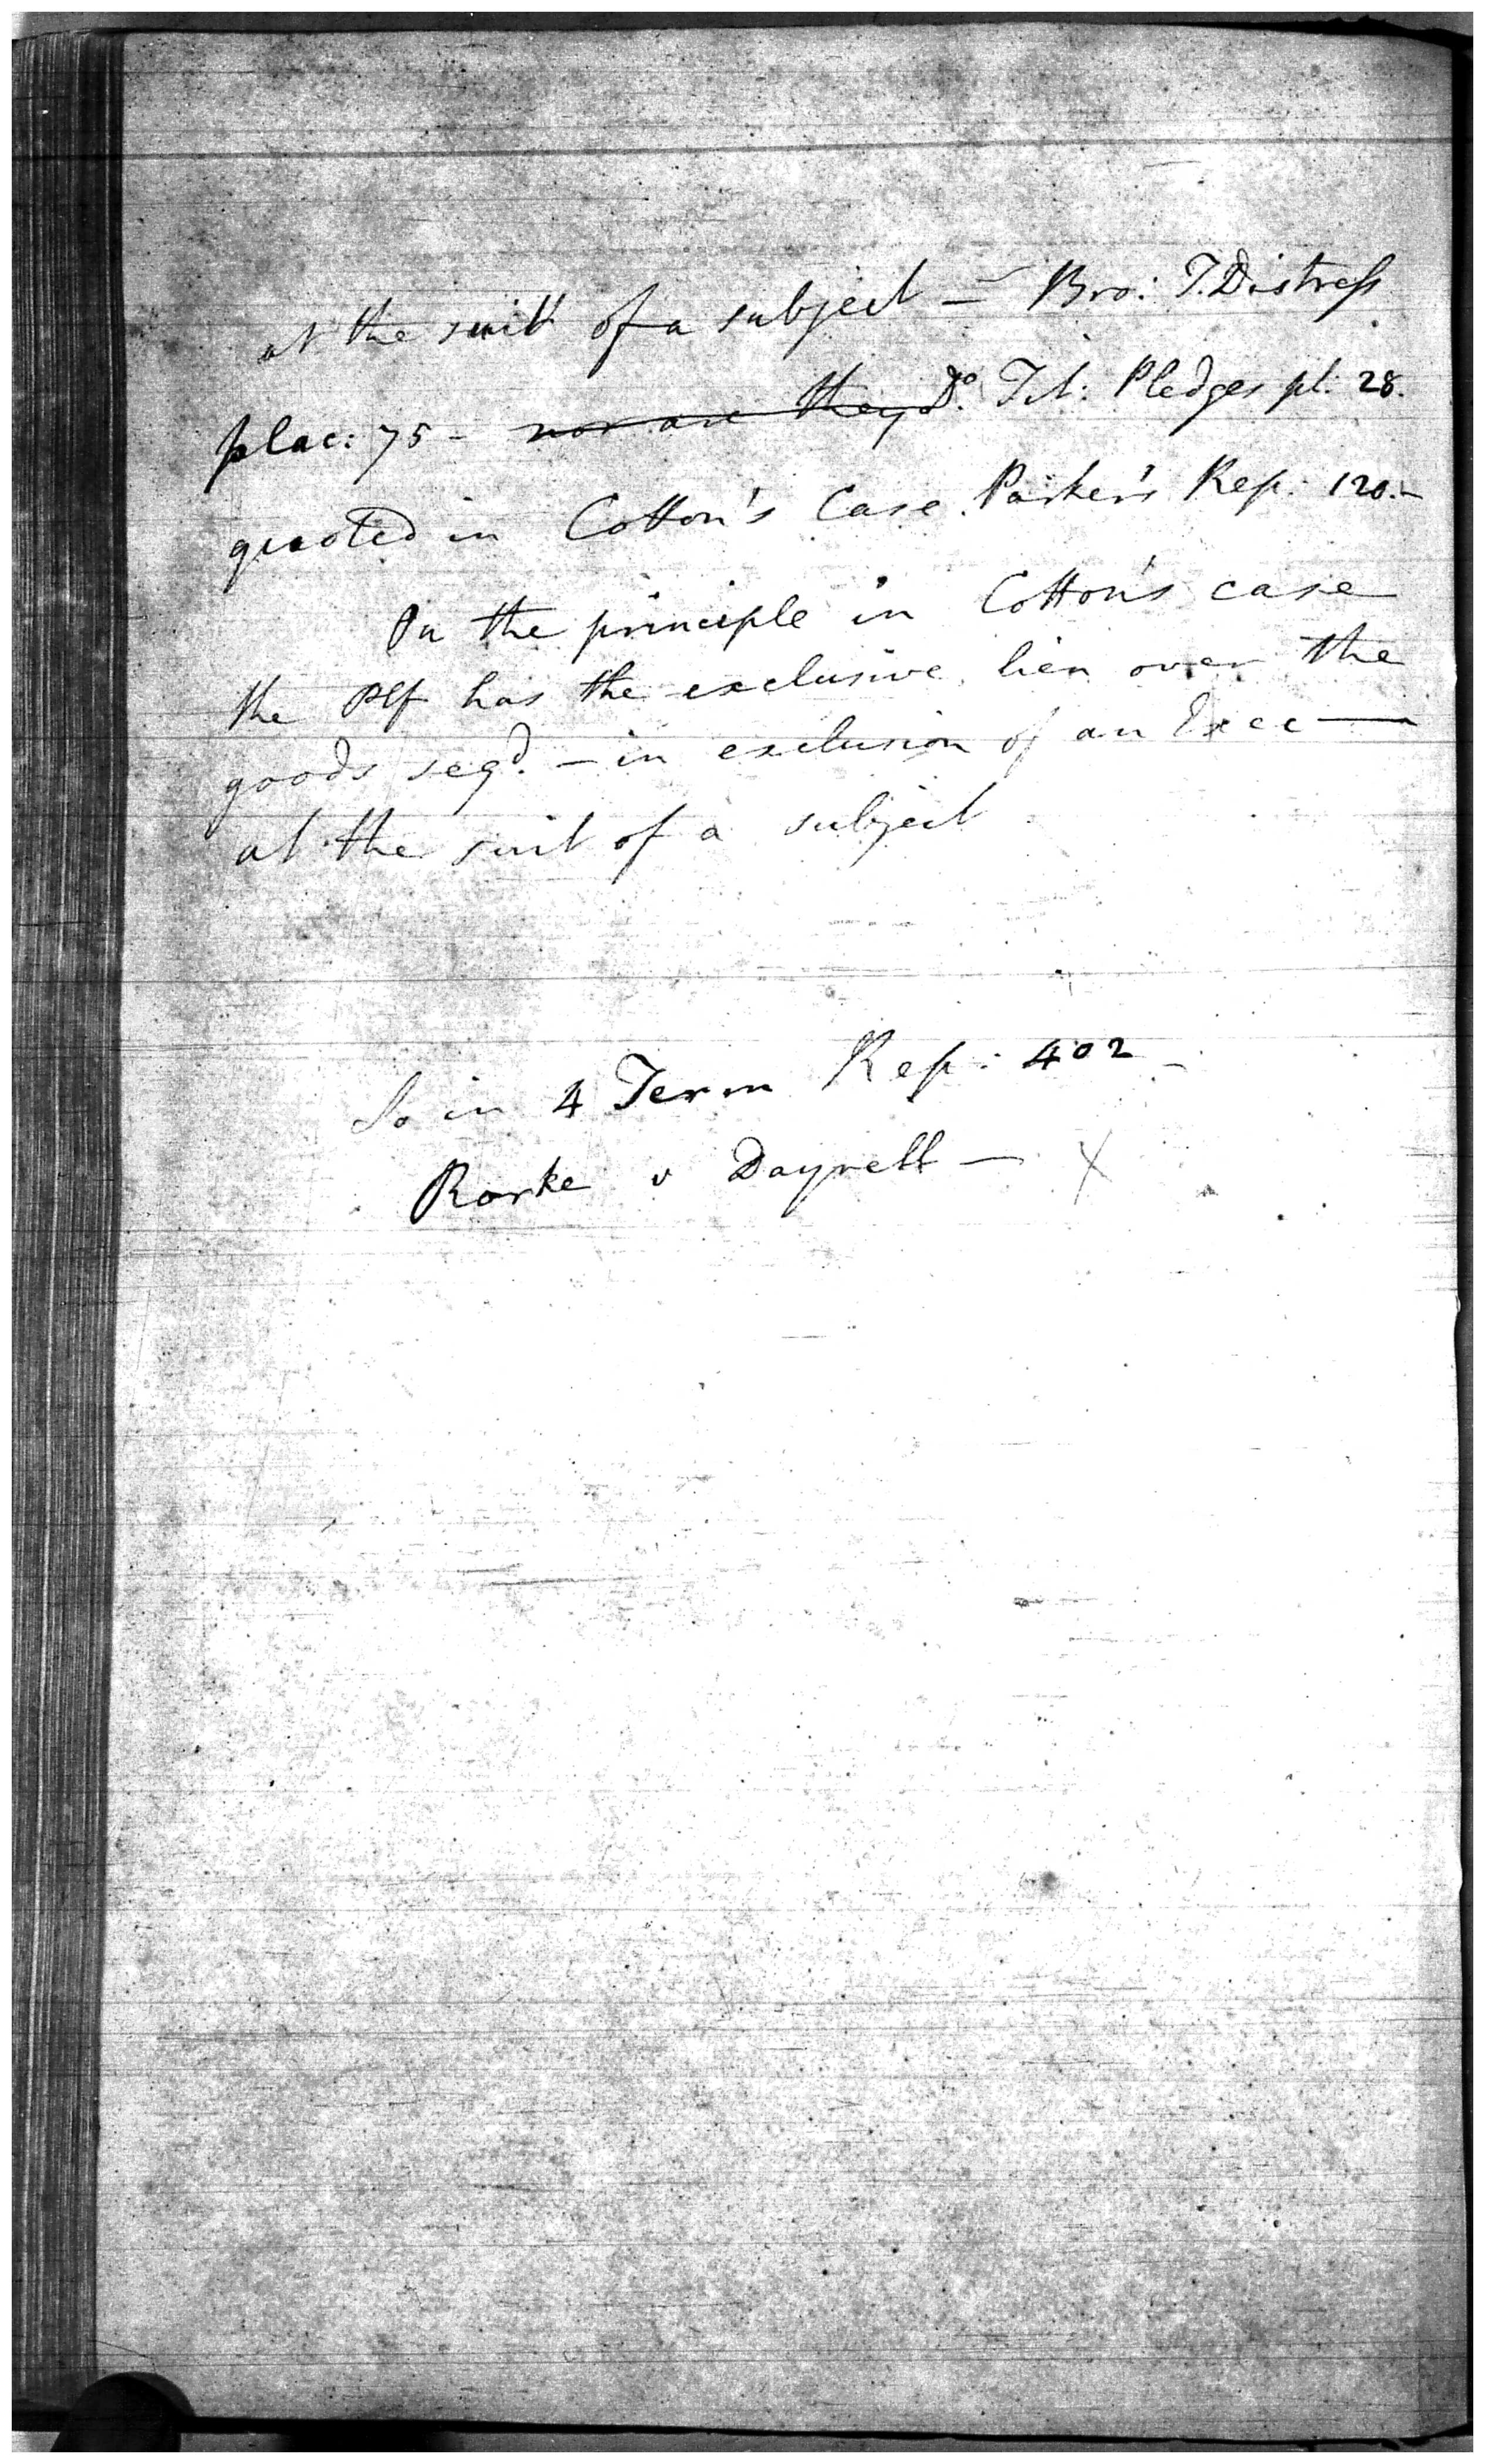 at the suit of a subject — Bro: T. Distress
plac: 75 - nor are they Do. Tit: Pledges pl: 28.
quoted in Cotton's Case. Parker's Rep: 120.—
On the principle in Cotton's case
the Plf has the exclusive lien over the
goods seqd. — in exclusion of an Exec —
at the suit of a subject
So in 4 Term Rep: 402 —
Rorke v Dayrell — X